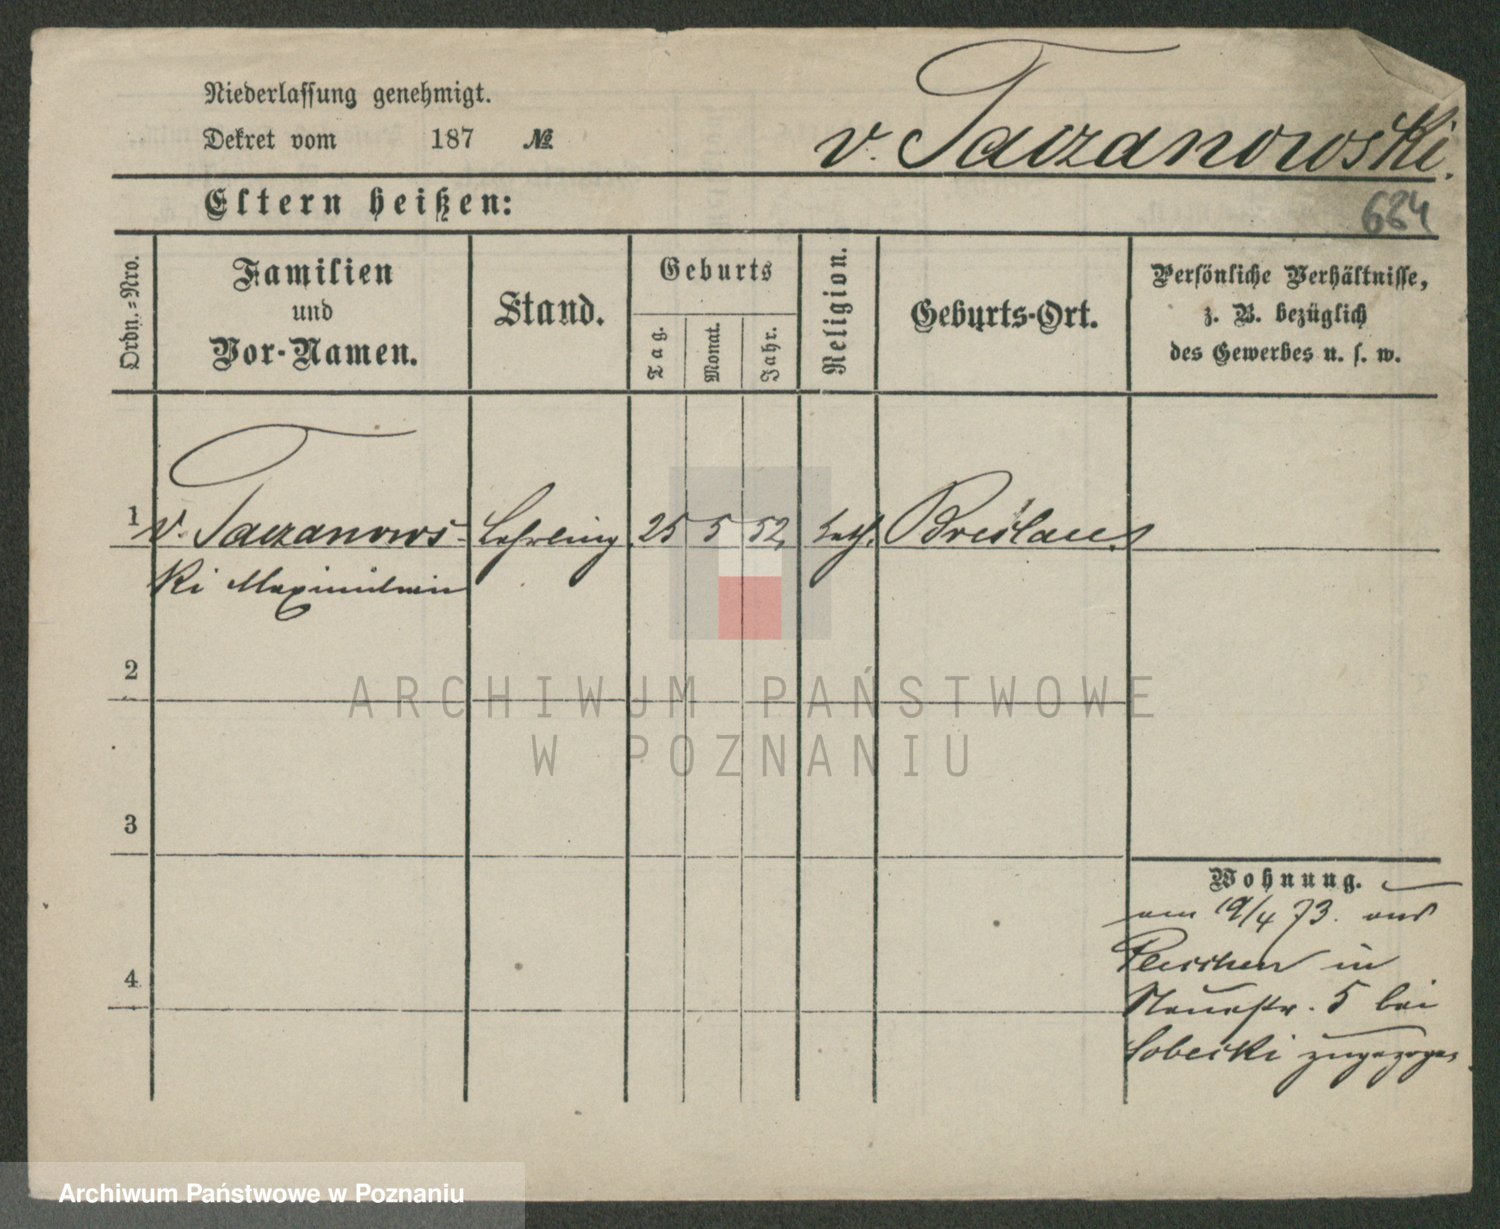 Niederlassung genehmigt.
Dekret vom 187 №
v. Taczanowski.
684
Eltern heißen:
Ordn.-Nro.
Familien
und
Vor-Namen.
Stand.
Geburts
Tag.
Monat.
Jahr.
Religion.
Geburts-Ort.
Persönliche Verhältnisse,
z. B. bezüglich
des Gewerbes u. s. w.
1 v. Taczanows- Lehrling. 25 5 52. kath. Breslau
ki Maximilian
2
3
4
Wohnung.
am 19/4 73. aus
Pleschen in
Neuestr. 5 bei
Sobecki zugezogen
ARCHIWUM PAŃSTWOWE
W POZNANIU
Archiwum Państwowe w Poznaniu